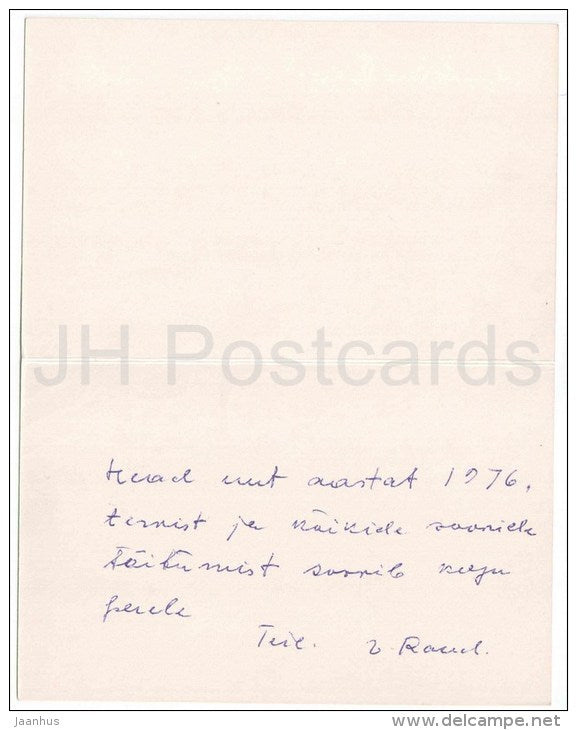 JH Postcards
Head uut aastat 1976,
tervist ja kõikide soovide
täitumist soovib kogu
perele
Teie.
Jaanhus
www.delcampe.net